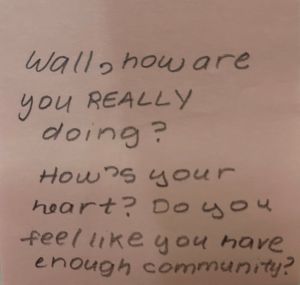 Wall, how are
you REALLY
doing?
How's your
heart? Do you
feel like you have
enough community?